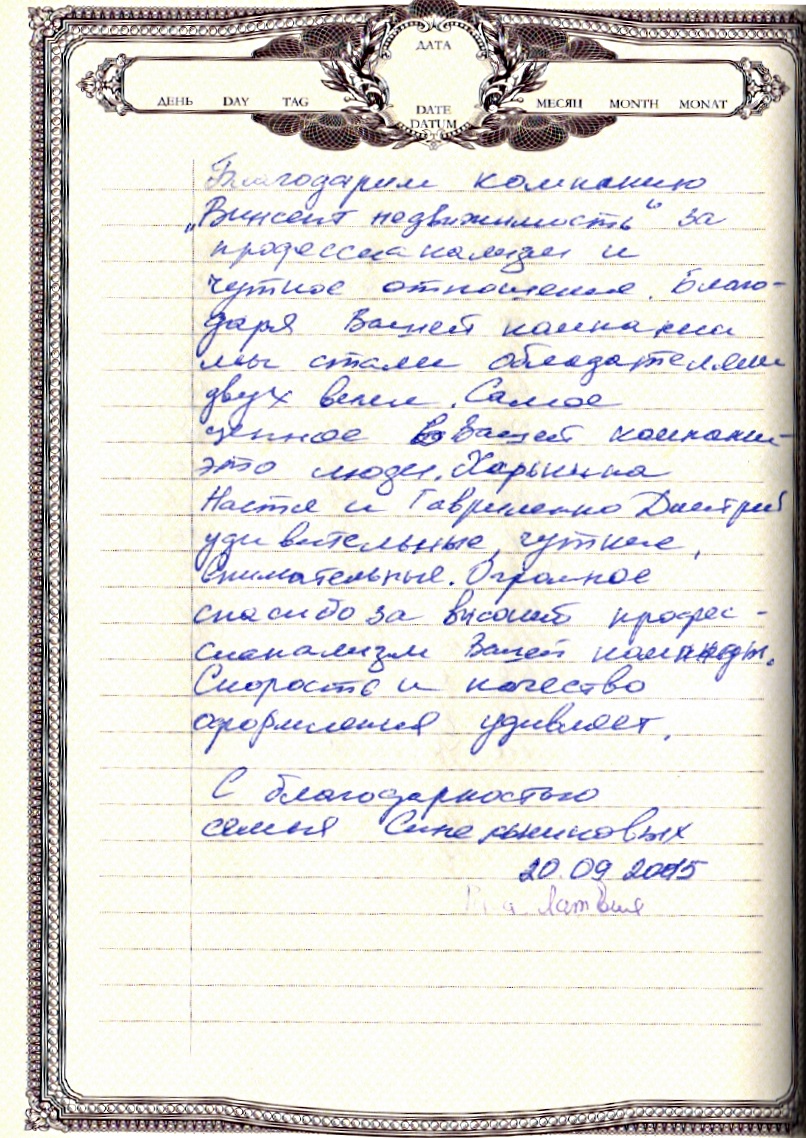 ДАТА
ДЕНЬ DAY TAG
DATE
DATUM
МЕСЯЦ MONTH MONAT
Благодарим компанию
„Винсент недвижимость“ за
профессионализм и
чуткое отношение. Благо-
даря Вашей компании
мы стали обладателями
двух вилл. Самое
ценное в Вашей компании
это люди. Харькина
Настя и Гавриленко Дмитрий
удивительные, чуткие,
внимательные. Огромное
спасибо за высокий профес-
сионализм Вашей команды.
Скорость и качество
оформления удивляет.
С благодарностью
семья Синельниковых
20.09 2015
Латвия